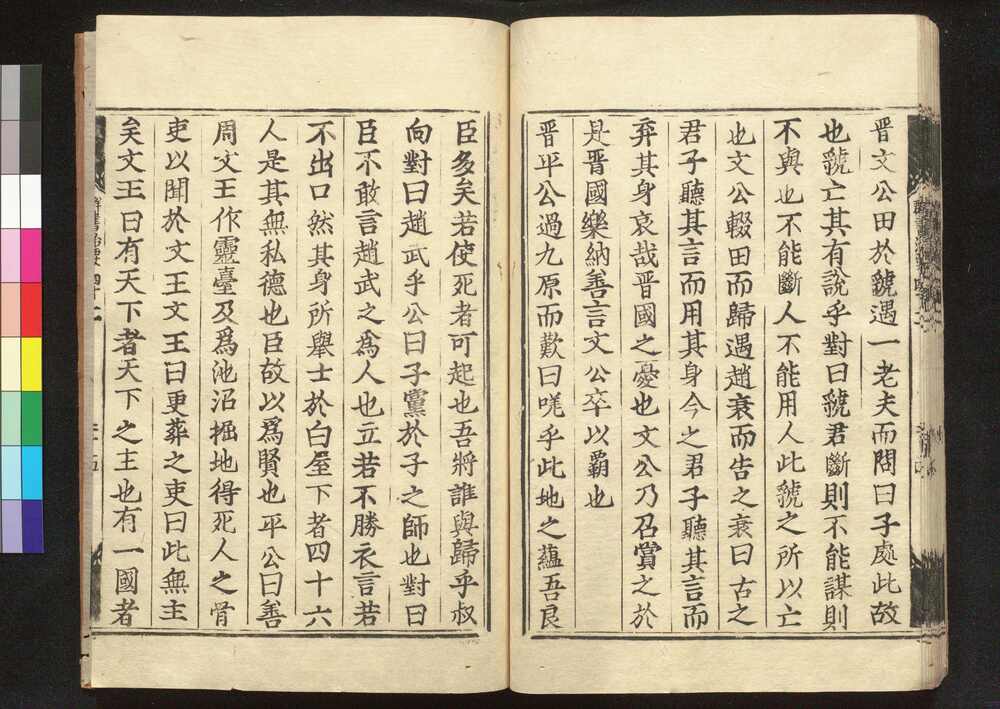 晋文公田於虢遇一老夫而問曰子處此故
也虢亡其有說乎對曰虢君斷則不能謀則
不與也不能斷人不能用人此虢之所以亡
也文公輟田而歸遇趙衰而告之衰曰古之
君子聽其言而用其身今之君子聽其言而
弃其身哀哉晋國之憂也文公乃召賞之於
是晋國樂納善言文公卒以霸也
晋平公過九原而歎曰嗟乎此地之蘊吾良
臣多矣若使死者可起也吾將誰與歸乎叔
向對曰趙武乎公曰子黨於子之師也對曰
臣不敢言趙武之爲人也立若不勝衣言若
不出口然其身所舉士於白屋下者四十六
人是其無私德也臣故以爲賢也平公曰善
周文王作靈臺及爲池沼掘地得死人之骨
吏以聞於文王文王曰更葬之吏曰此無主
矣文王曰有天下者天下之主也有一國者
群書治要 四十二